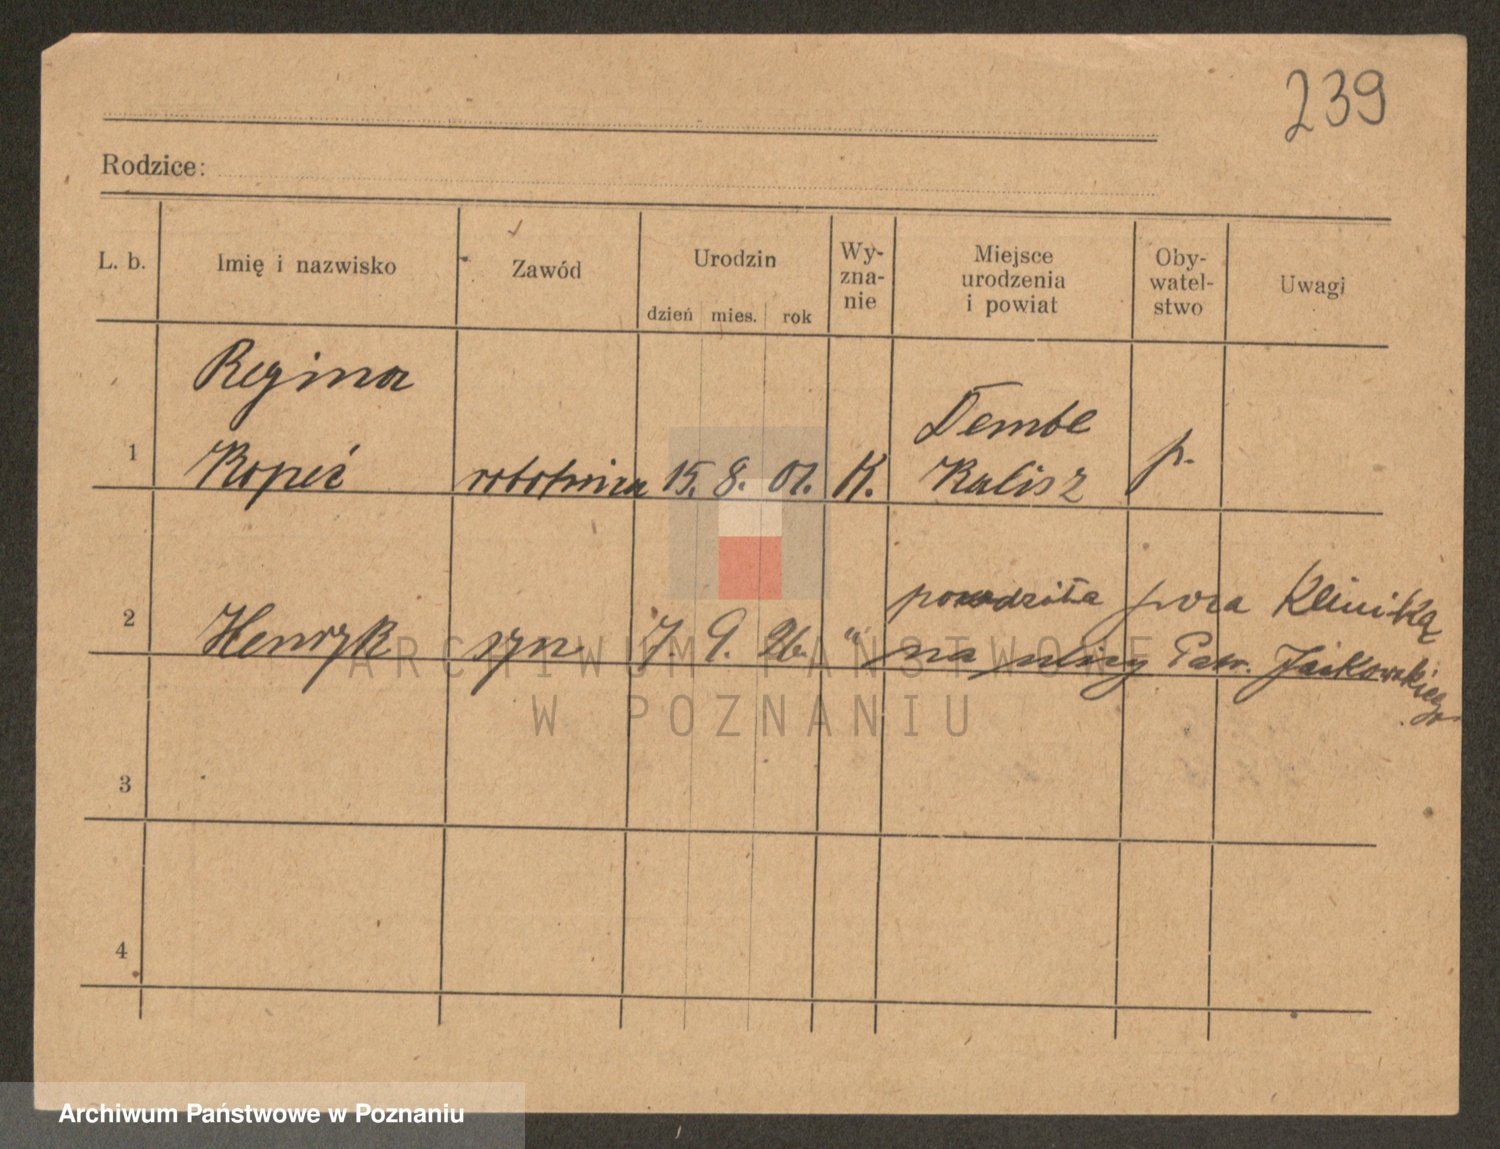 239
Rodzice:
L. b. Imię i nazwisko Zawód Urodzin Wy-zna-nie Miejsce urodzenia i powiat Oby-watel-stwo Uwagi
dzień mies. rok
Regina
Dembe
1 Kopeć robotnica 15. 8. 01. K. Kalisz p.
poza Kliniką
2 Henryk syn 7. 9. 26. " na ulicy Patr. Jackowskiego
3
4
ARCHIWUM PAŃSTWOWE
W POZNANIU
Archiwum Państwowe w Poznaniu